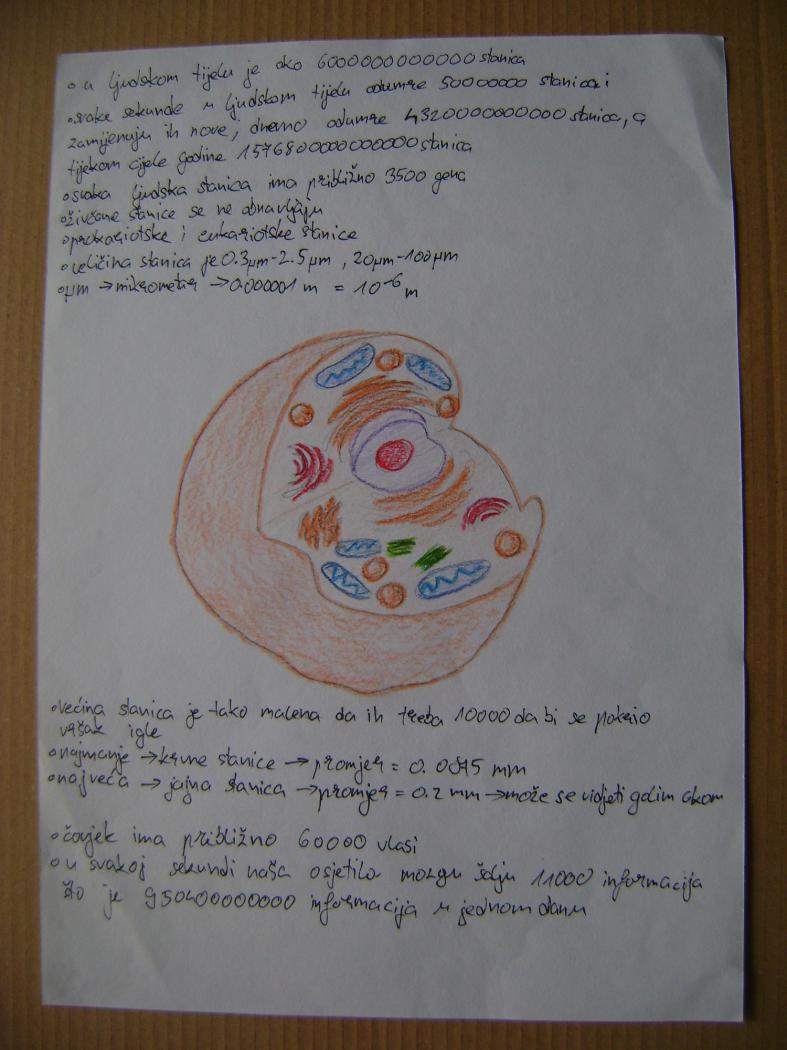 ◦ u ljudskom tijelu je oko 60000000000000 stanica
◦ svake sekunde u ljudskom tijelu odumre 50000000 stanica i
zamjenjuju ih nove, dnevno odumre 4320000000000 stanica, a
tijekom cijele godine 1576800000000000 stanica
◦ svaka ljudska stanica ima približno 3500 gena
◦ živčane stanice se ne obnavljaju
◦ prokariotske i eukariotske stanice
◦ veličina stanica je 0.3µm-2.5µm, 20µm-100µm
◦ µm → mikrometar → 0.000001 m = 10⁻⁶ m
◦ većina stanica je tako malena da ih treba 10000 da bi se pokrio
vršak igle
◦ najmanje → krvne stanice → promjer = 0.0075 mm
◦ najveća → jajna stanica → promjer = 0.2 mm → može se vidjeti golim okom
◦ čovjek ima približno 60000 vlasi
◦ u svakoj sekundi naša osjetila mozgu šalju 11000 informacija
što je 950400000000 informacija u jednom danu